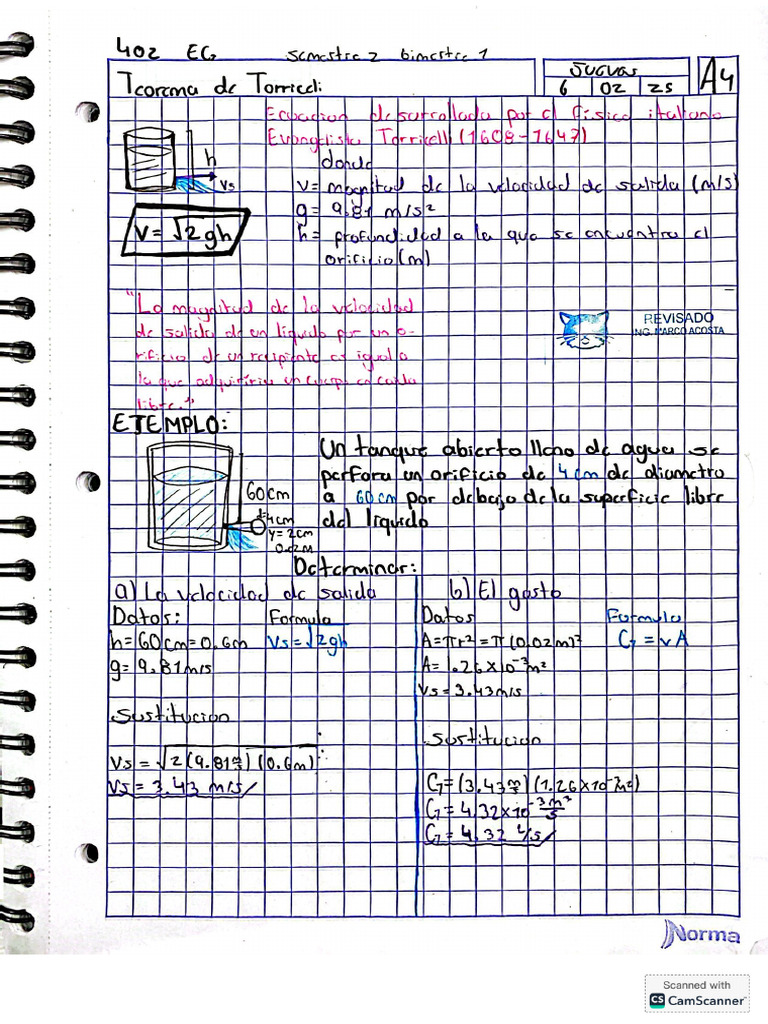 402 EG semestre 2 bimestre 1
Teorema de Torricelli
Jueves
6 02 25
A4
Ecuacion desarrollada por el físico italiano
Evangelista Torricelli (1608-1647)
h
Vs
donde
v= magnitud de la velocidad de salida (m/s)
g= 9.81 m/s²
h= profundidad a la que se encuentra el
orificio (m)
V=√2gh
"La magnitud de la velocidad
de salida de un líquido por un o-
rificio de un recipiente es igual a
la que adquiriría un cuerpo en caída
libre."
REVISADO
ING. MARCO ACOSTA
EJEMPLO:
Un tanque abierto lleno de agua se
perfora un orificio de 4cm de diametro
a 60cm por debajo de la superficie libre
del líquido
60cm
4cm
r=2cm
0.02m
Determinar:
a) La velocidad de salida
Datos: Formula
h=60cm=0.6m Vs=√2gh
g= 9.81m/s
Sustitucion
Vs=√2(9.81m/s²)(0.6m)
Vs= 3.43 m/s
b) El gasto
Datos Formula
A=πr²=π(0.02m)² G=vA
A=1.26x10⁻³m²
Vs=3.43m/s
Sustitucion
G=(3.43m/s)(1.26x10⁻³m²)
G=4.32x10⁻³m³/s
G=4.32 L/s
Norma
Scanned with
CS CamScanner